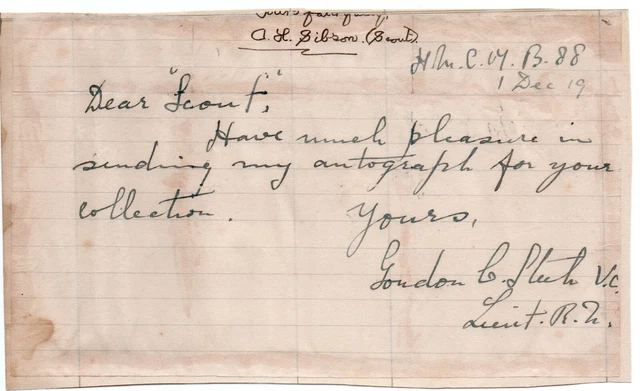 Yours faithfully,
A. H. Gibson. (Scout).
H.M.C.M.B. 88
1 Dec 19
Dear "Scout",
Have much pleasure in
sending my autograph for your
collection.
Yours,
Gordon C. Steele V.C.
Lieut. R.N.